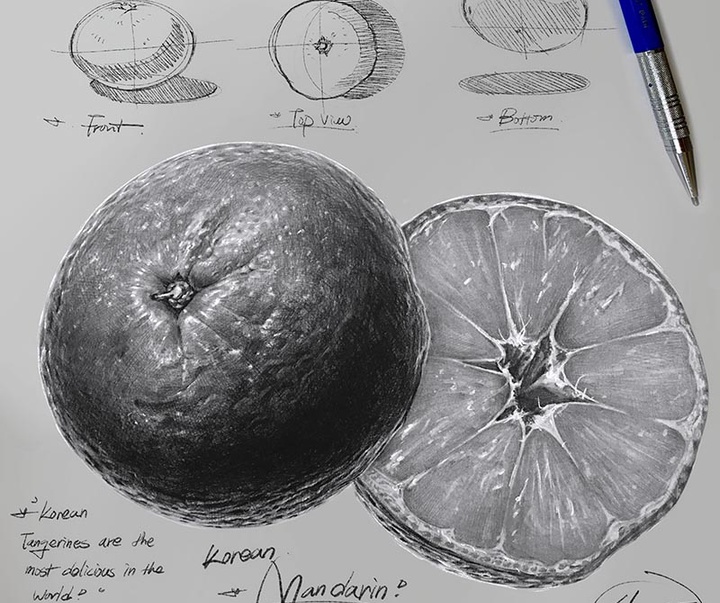 Front.
Top View.
Bottom.
"Korean
Tangerines are the
most delicious in the
World? "
Korean
Mandarin?